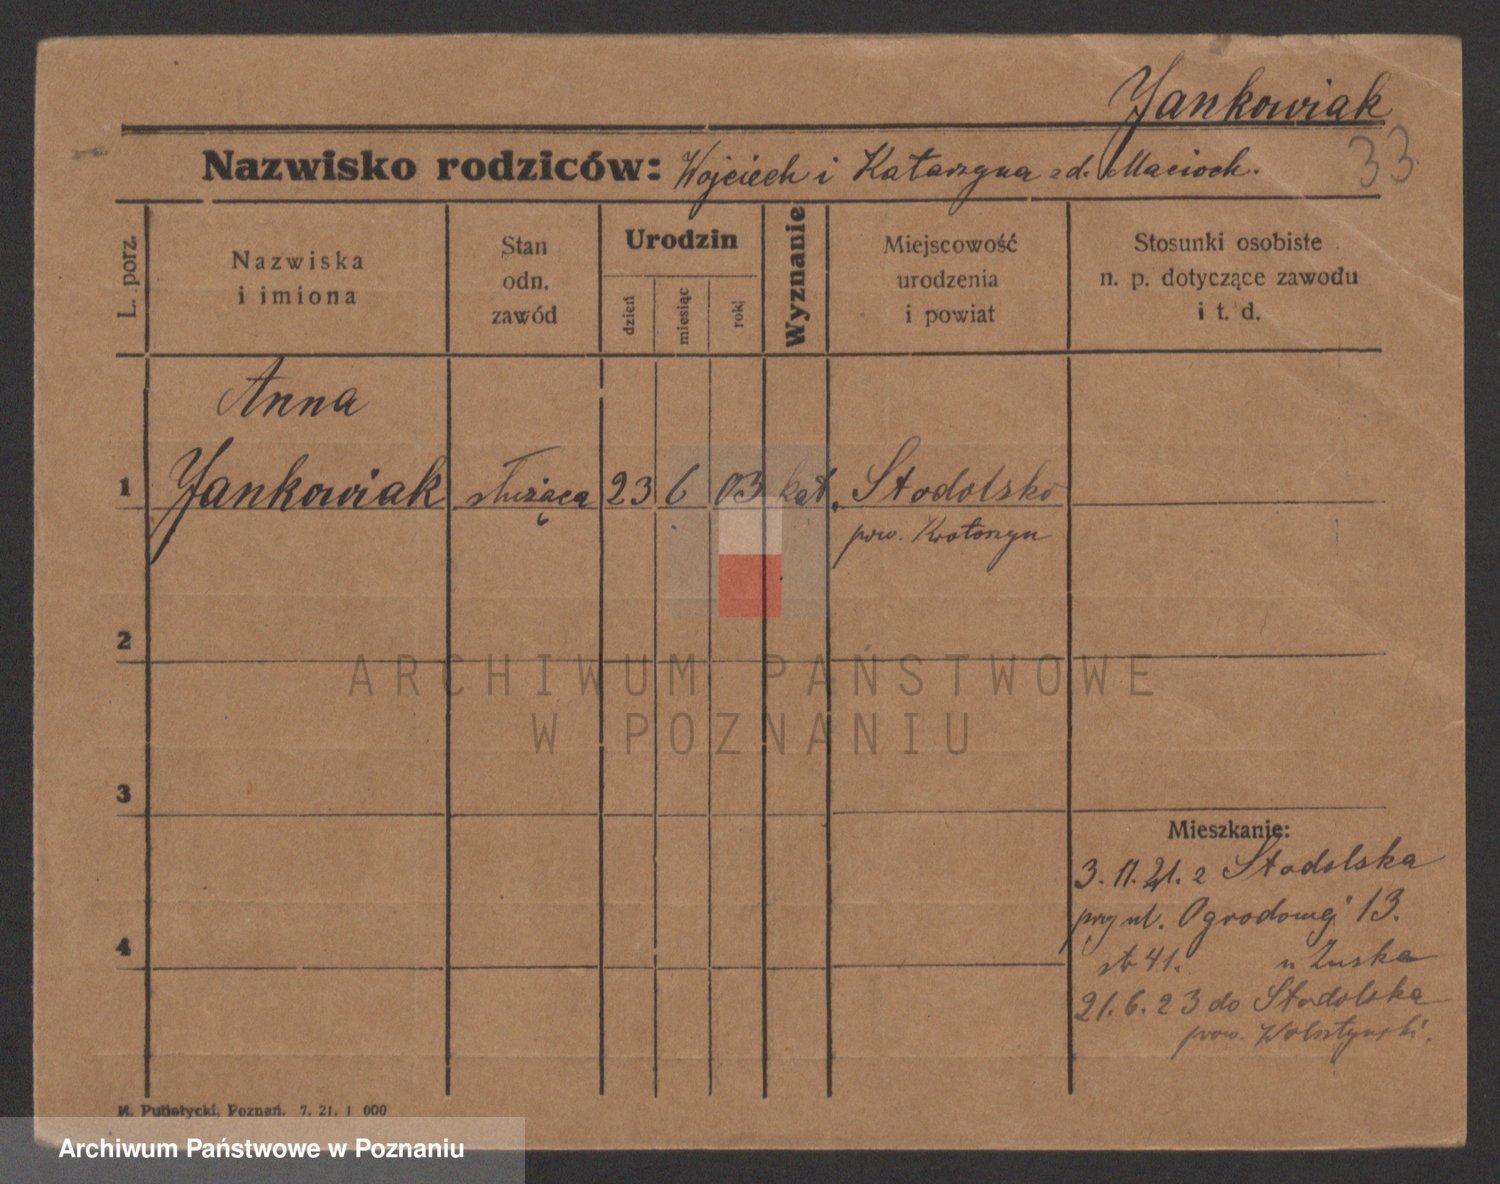 Jankowiak
33
Nazwisko rodziców: Wojciech i Katarzyna zd. Macioch.
L. porz.
Nazwiska
i imiona
Stan
odn.
zawód
Urodzin
dzień
miesiąc
rok
Wyznanie
Miejscowość
urodzenia
i powiat
Stosunki osobiste
n. p. dotyczące zawodu
i t. d.
Anna
1 Jankowiak służąca 23 6 03 kat. Stodolsko
pow. Krotoszyn
2
ARCHIWUM PAŃSTWOWE
W POZNANIU
3
Mieszkanie:
3. 11. 21. z Stodolska
przy ul. Ogrodowej 13.
4
41. u Zuska
21. 6. 23 do Stodolska
pow. Wolsztyński.
Poznań. 7. 21. 1 000
Archiwum Państwowe w Poznaniu